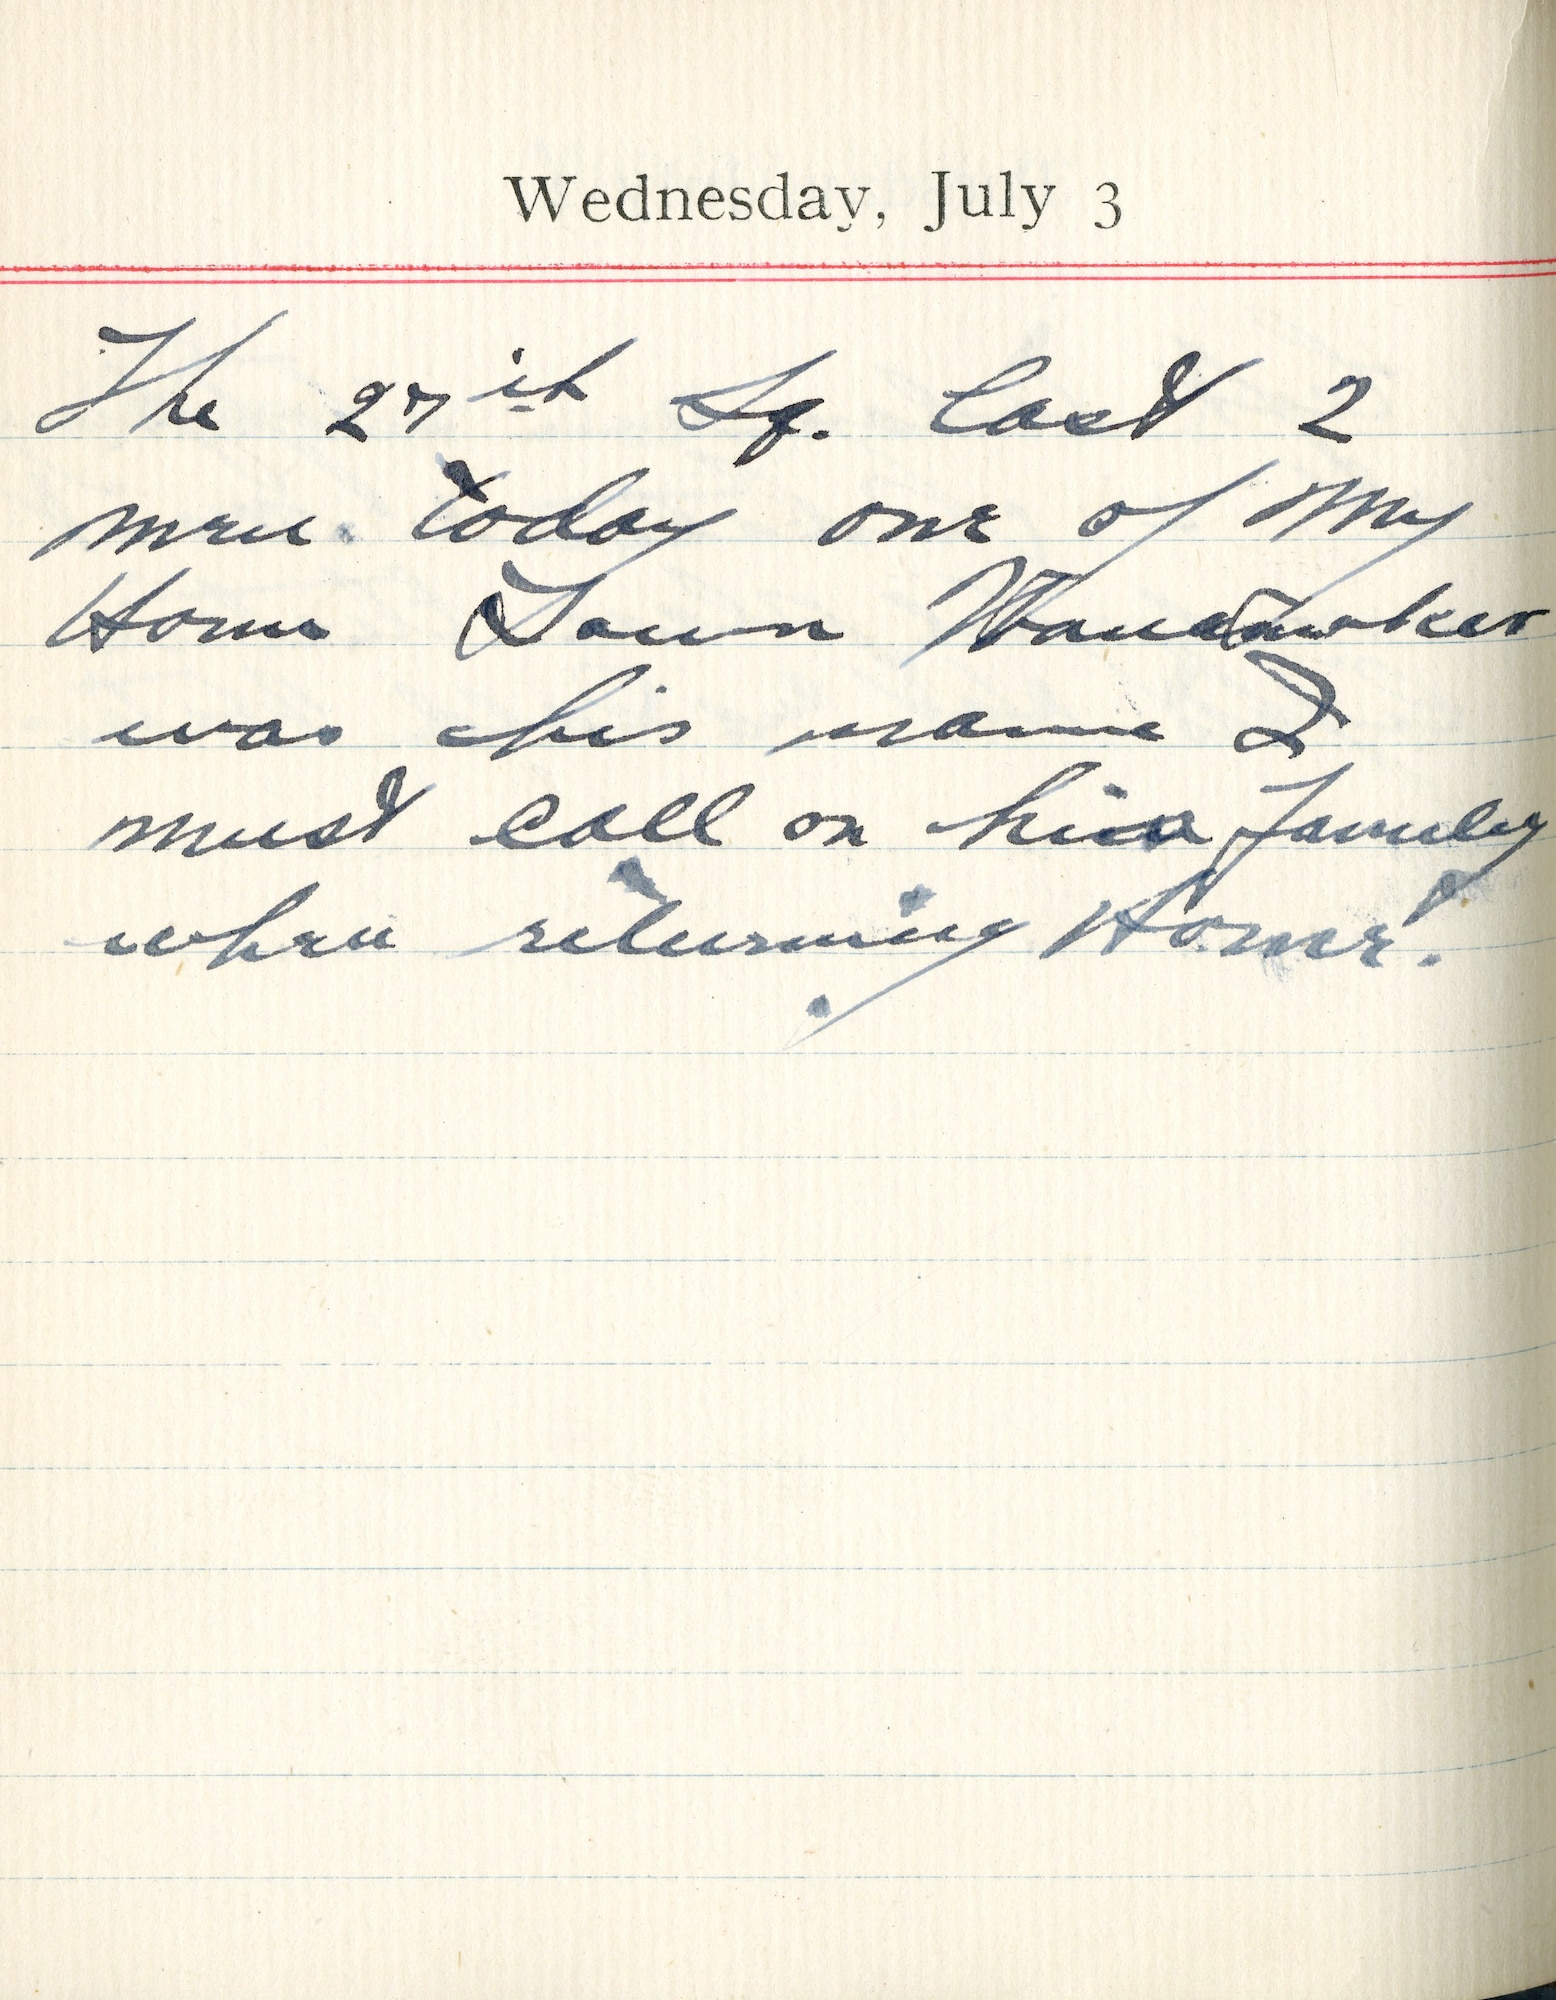 Wednesday, July 3
The 27th Sq. lost 2
men today one of my
Home Town Wanamaker
was his name I
must call on his family
when returning Home.